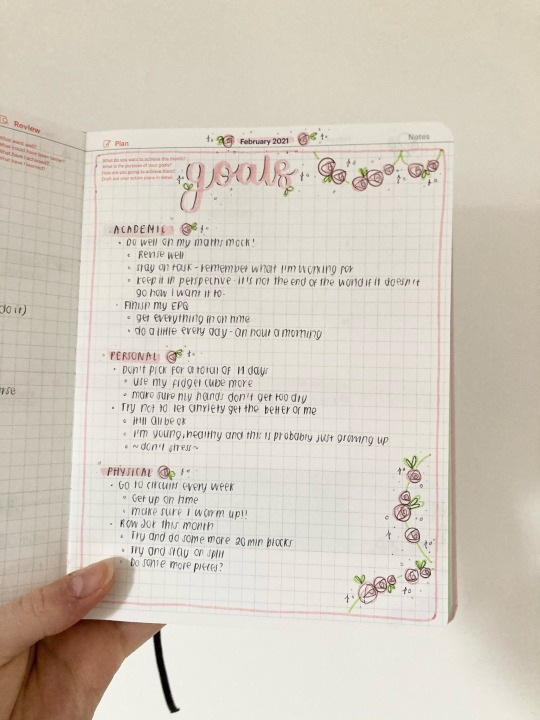 Review
What went well?
Plan
February 2021
Notes
What do you want to achieve this month?
What is the purpose of your goals?
How are you going to achieve them?
Draft out your action plans in detail.
goals
ACADEMIC
Do well on my maths mock!
Revise well
stay on task - remember what I'm working for
keep it in perspective - it's not the end of the world if it doesn't
go how I want it to.
Finish my EPQ
get everything in on time
do a little every day - an hour a morning
do it)
PERSONAL
Don't pick for a total of 14 days
use my fidget cube more
make sure my hands don't get too dry
Try not to let anxiety get the better of me
It'll all be ok
I'm young, healthy and this is probably just growing up
~don't stress~
PHYSICAL
Go to circuits every week
Get up on time
make sure I warm up!!
Row this month
Try and do some more 20 min blocks
Try and stay on split
Do some more pieces?